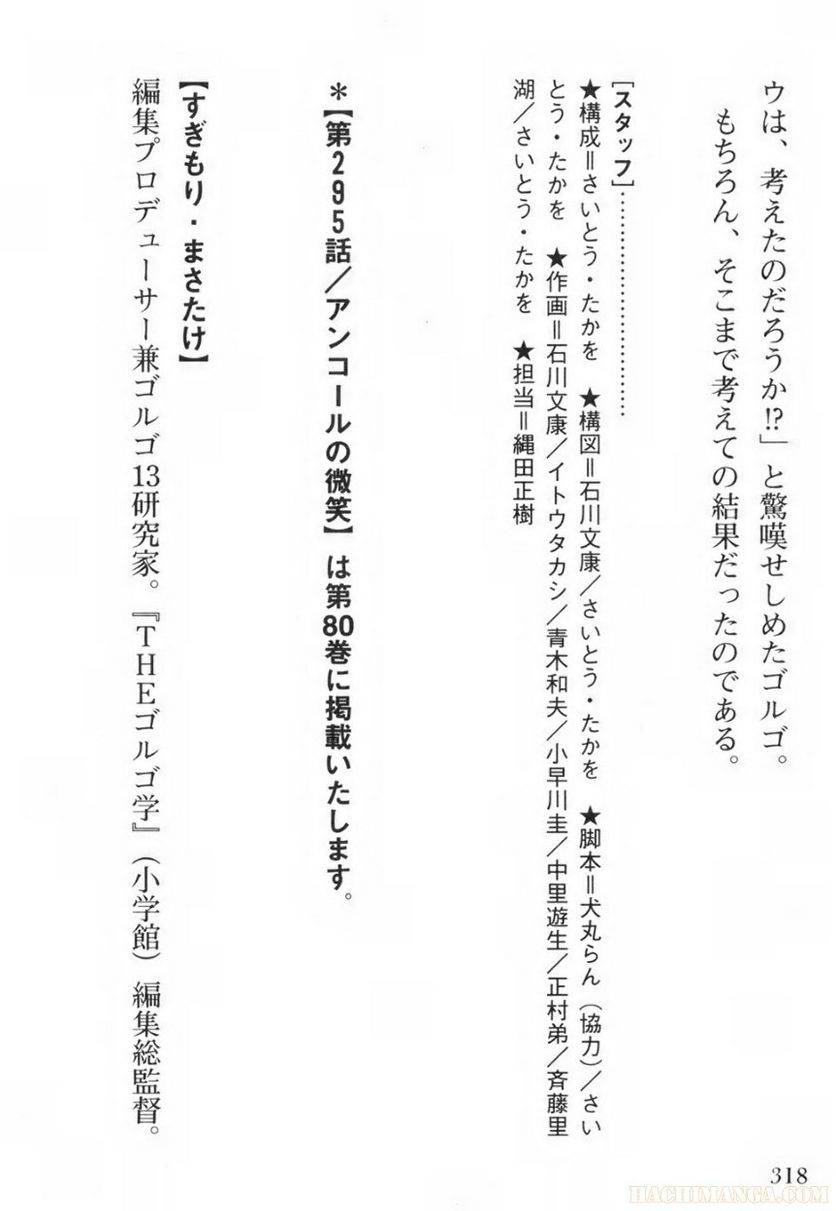 ウは、考えたのだろうか⁉」と驚嘆せしめたゴルゴ。
もちろん、そこまで考えての結果だったのである。
[スタッフ]…………………………
★構成＝さいとう・たかを　★構図＝石川文康／さいとう・たかを　★脚本＝犬丸らん（協力）／さい
とう・たかを　★作画＝石川文康／イトウタカシ／青木和夫／小早川圭／中里遊生／正村弟／斉藤里
湖／さいとう・たかを　★担当＝縄田正樹
＊【第295話／アンコールの微笑】は第80巻に掲載いたします。
【すぎもり・まさたけ】
編集プロデューサー兼ゴルゴ13研究家。『THEゴルゴ学』（小学館）編集総監督。
318
HACHIMANGA.COM